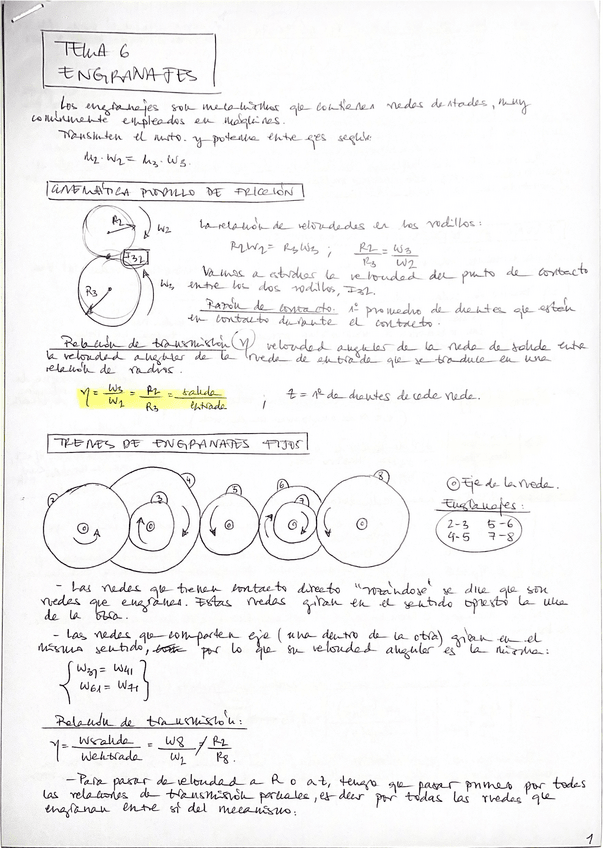 TEMA 6
ENGRANAJES
Los engranajes son mecanismos que contienen ruedas dentadas, muy
comúnmente empleados en máquinas.
Transmiten el mvto. y potencia entre ejes según:
M2·W2 = M3·W3.
CINEMÁTICA RODILLO DE FRICCIÓN
R2
W2
I32
R3
W3
La relación de velocidades en los rodillos:
R2W2 = R3W3 ; R2/R3 = W3/W2
Vamos a estudiar la velocidad del punto de contacto
entre los dos rodillos, I32.
Razón de contacto: nº promedio de dientes que están
en contacto durante el contacto.
Relación de transmisión (η) velocidad angular de la rueda de salida entre
la velocidad angular de la rueda de entrada que se traduce en una
relación de radios.
η = W3/W2 = R2/R3 = salida/entrada ; Z = nº de dientes de cada rueda.
TRENES DE ENGRANAJES FIJOS
2 3 4 5 6 7 8
Eje de la rueda.
Engranajes:
2-3 5-6
4-5 7-8
- Las ruedas que tienen contacto directo "rozándose" se dice que son
ruedas que engranan. Estas ruedas giran en el sentido opuesto la una
de la otra.
- Las ruedas que comparten eje (una dentro de la otra) giran en el
mismo sentido, por lo que su velocidad angular es la misma:
W31 = W41
W61 = W71
Relación de transmisión:
η = Wsalida/Wentrada = W8/W2 ≠ R2/R8.
- Para pasar de velocidad a R o a z, tengo que pasar primero por todas
las relaciones de transmisión parciales, es decir por todas las ruedas que
engranan entre sí del mecanismo:
1